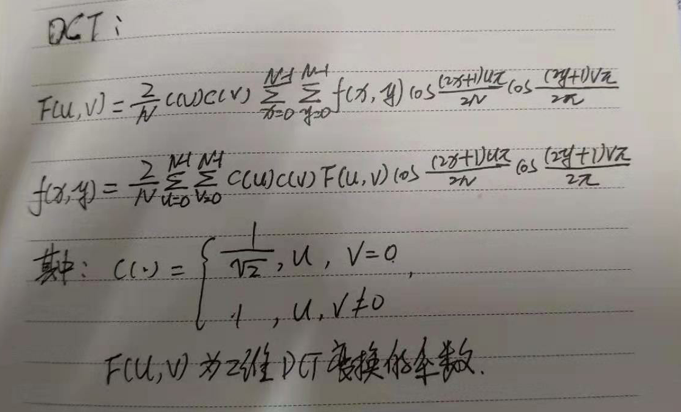 DCT:
F(u,v) = 2/N C(u)C(v) ∑_{x=0}^{N-1} ∑_{y=0}^{N-1} f(x,y) cos (2x+1)uπ/2N cos (2y+1)vπ/2π
f(x,y) = 2/N ∑_{u=0}^{N-1} ∑_{v=0}^{N-1} C(u)C(v)F(u,v) cos (2x+1)uπ/2N cos (2y+1)vπ/2π
其中: C(·) = { 1/√2, u, v=0,
1, u, v≠0
F(u,v)为二维DCT变换的系数.